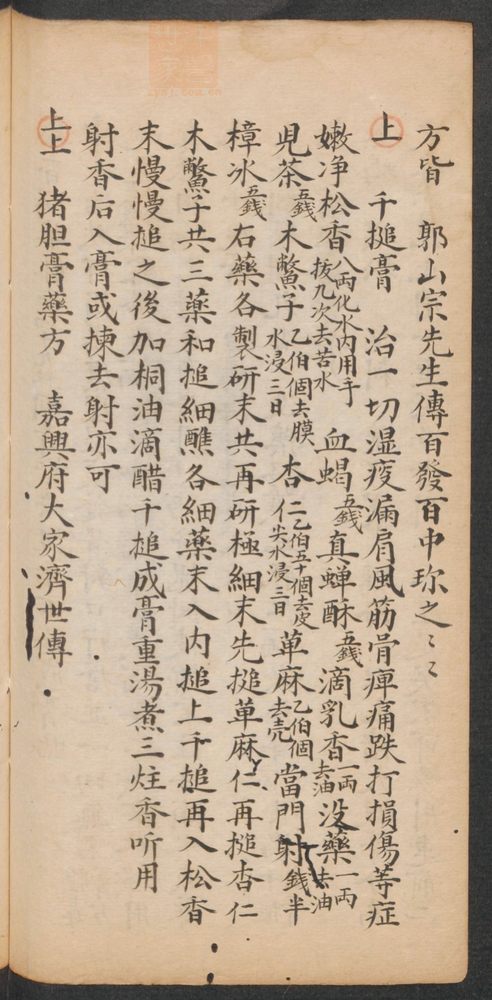 方皆　郭山宗先生傳百發百中珎之〻〻
上　千搥膏　治一切湿疫漏肩風筋骨痺痛跌打損傷等症
嫩净松香八両化水内用手拔九次去苦水　血蝎五錢真蟬酥五錢滴乳香一両去油没藥一両去油
児茶五錢木鱉子乙伯個去膜水浸三日　杏仁二乙伯五十個去皮尖水浸三日萆麻乙伯個去壳當門射錢半
樟氷五錢右藥各製研末共再研極細末先搥萆麻仁再搥杏仁
木鱉子共三藥和搥細醮各細藥末入内搥上千搥再入松香
末慢慢搥之後加桐油滴醋千搥成膏重湯煮三炷香听用
射香后入膏或揀去射亦可
上上　猪胆膏藥方　嘉興府大家濟世傳